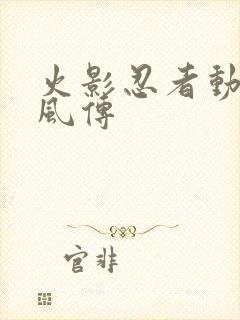 火影忍者動
風傳
官非